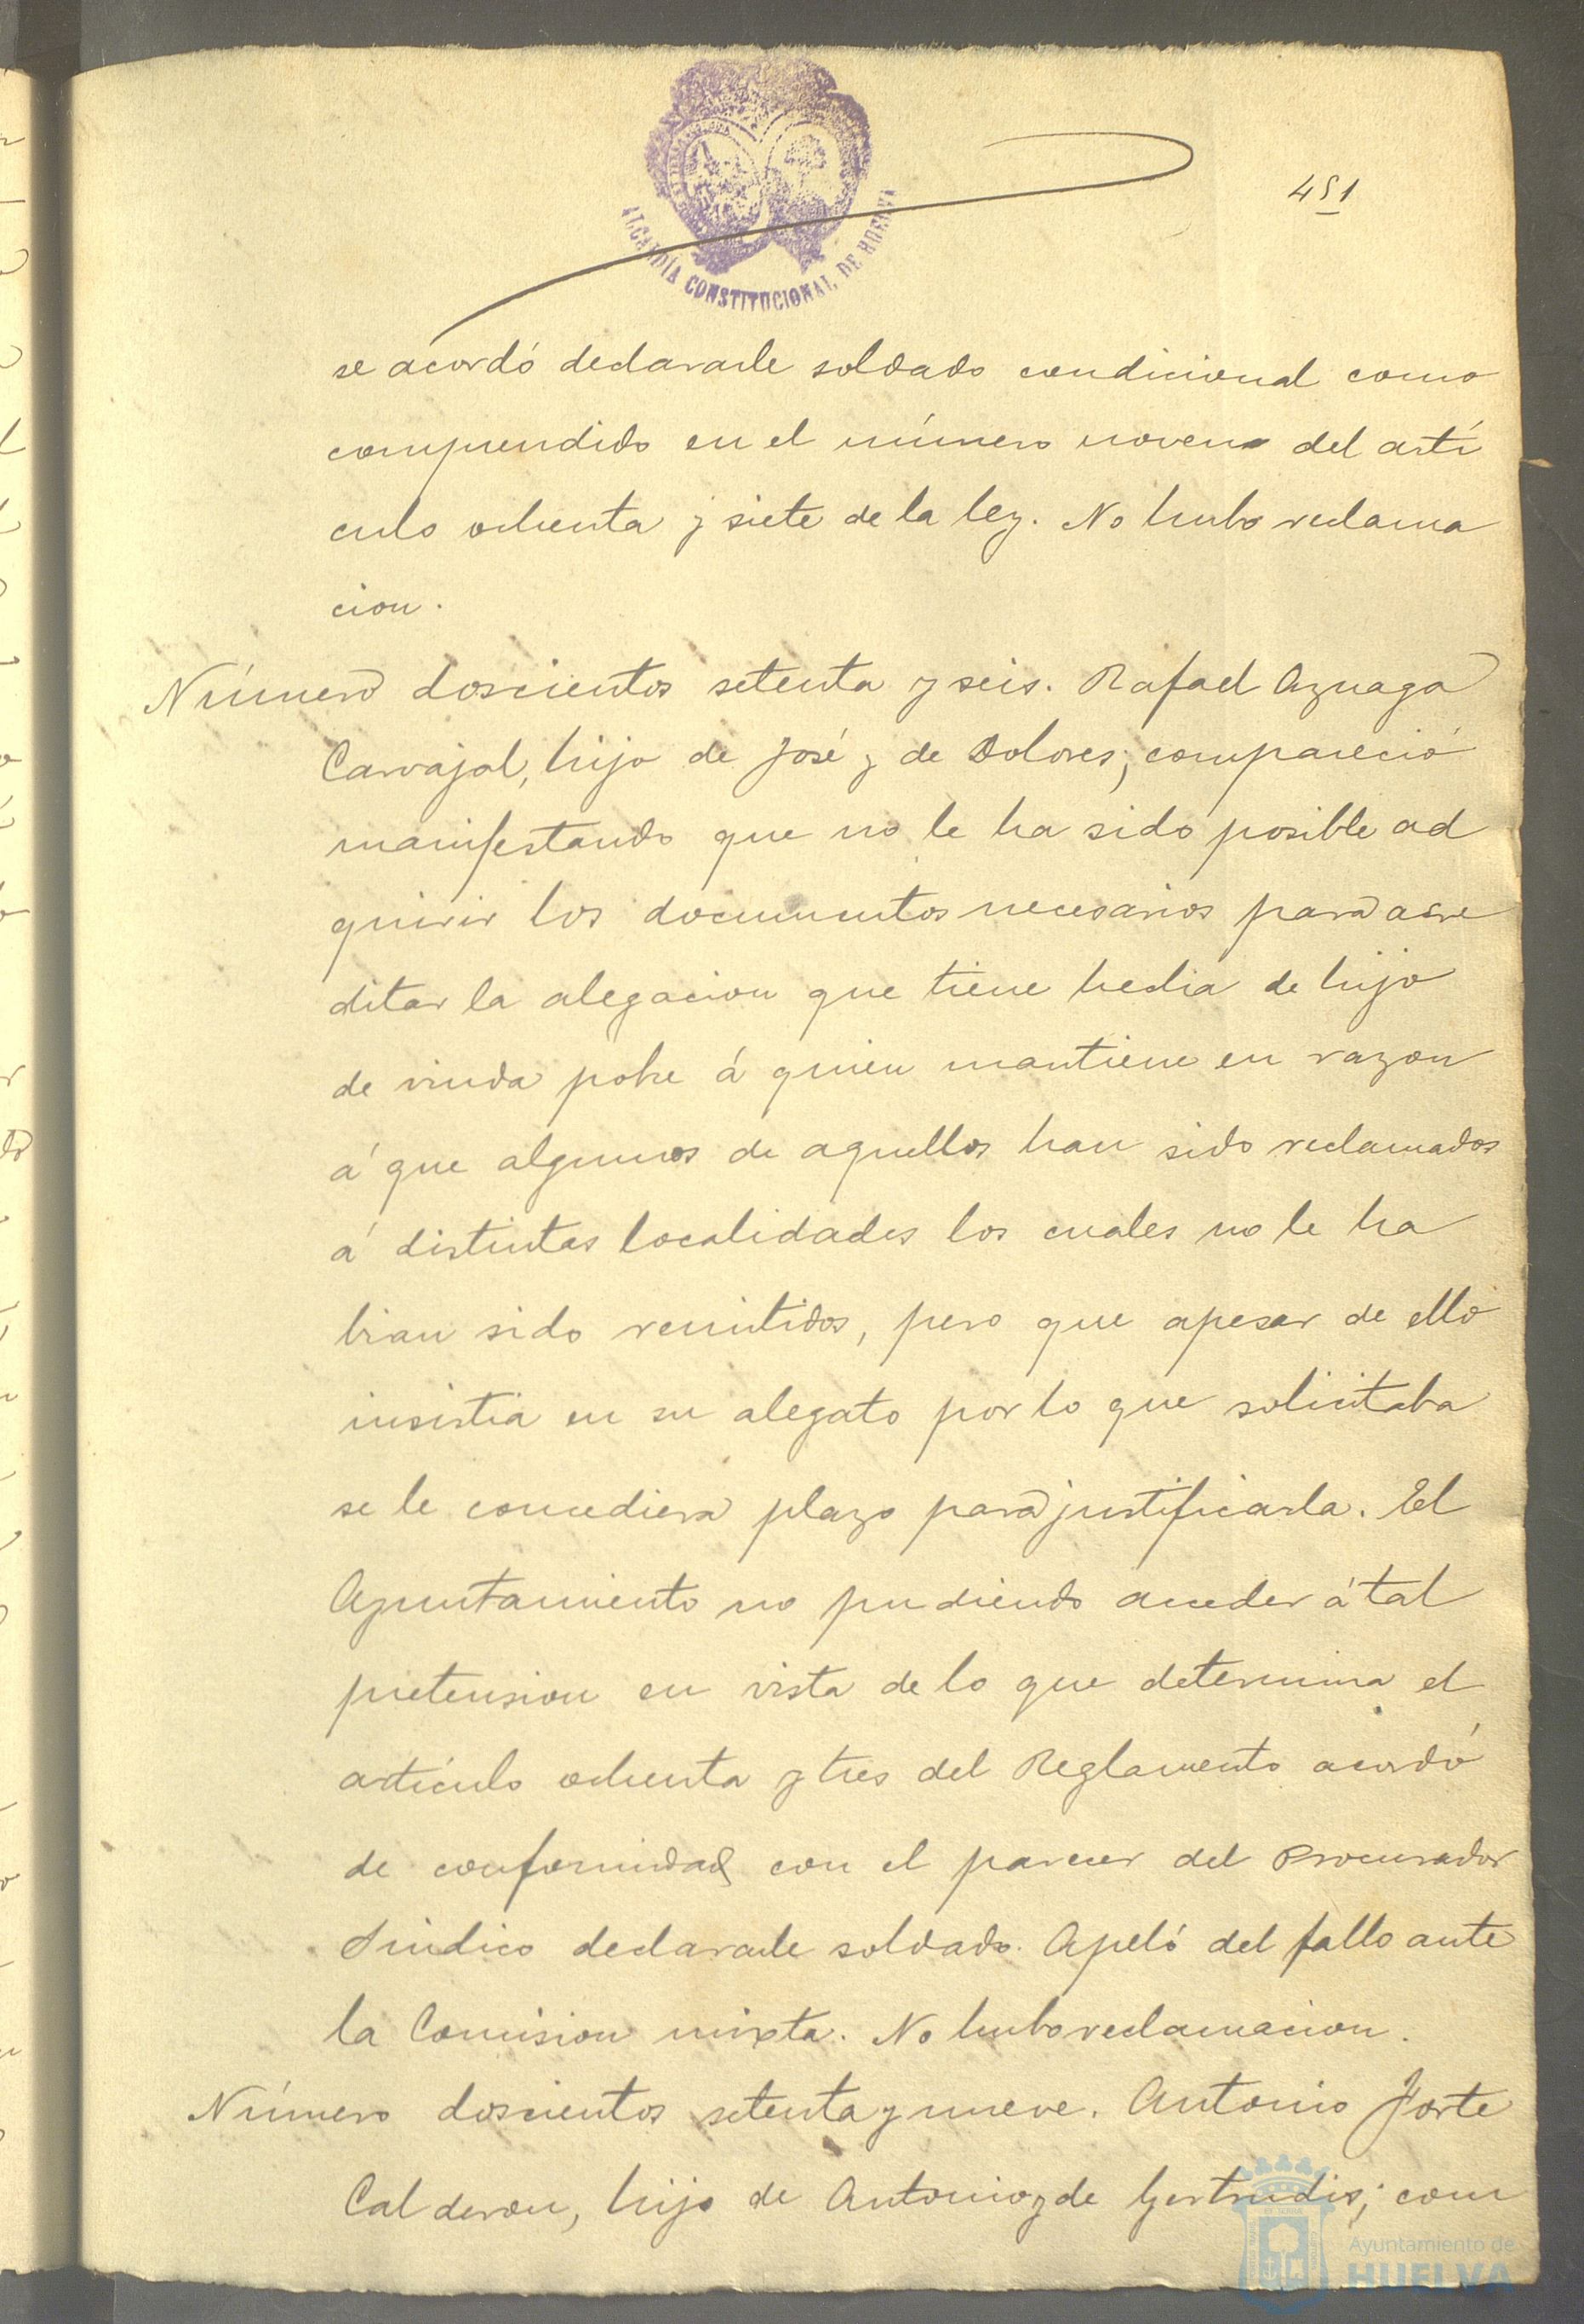 ALCALDÍA CONSTITUCIONAL DE HUELVA
451
se acordó declararle soldado condicional como
comprendido en el número noveno del artí
culo ochenta y siete de la ley. No hubo reclama
cion.
Número doscientos setenta y seis. Rafael Azuaga
Carvajal, hijo de José y de Dolores; compareció
manifestando que no le ha sido posible ad
quirir los documentos necesarios para acre
ditar la alegacion que tiene hecha de hijo
de viuda pobre á quien mantiene en razon
á que algunos de aquellos han sido reclamados
á distintas localidades los cuales no le ha
bian sido remitidos, pero que apesar de ello
insistia en su alegato por lo que solicitaba
se le concediera plazo para justificarla. El
Ayuntamiento no pudiendo acceder á tal
pretension en vista de lo que determina el
artículo ochenta y tres del Reglamento acordó
de conformidad con el parecer del Procurador
Sindico declararle soldado. Apeló del fallo ante
la Comision mixta. No hubo reclamacion.
Número doscientos setenta y nueve. Antonio Forte
Calderon, hijo de Antonio y de Gertrudis; com
Ayuntamiento de
HUELVA